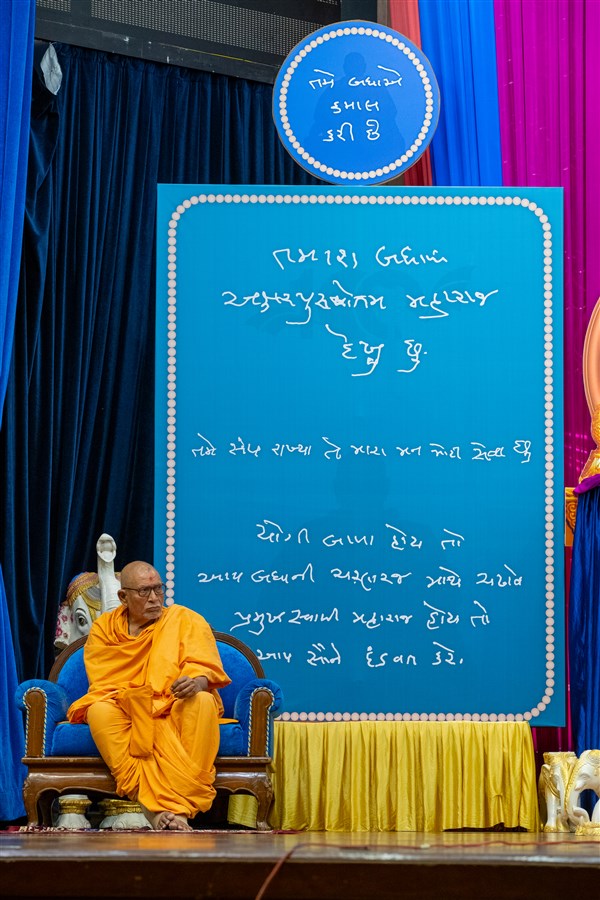 તમે બધાએ
કમાલ
કરી છે
તમારા બધામાં
અક્ષરપુરુષોત્તમ મહારાજ
દેખુ છુ.
તમે સંપ રાખ્યો તે મારા મન મોટી સેવા છે
યોગી બાપા હોય તો
આપ બધાની ચરણરજ માથે ચઢાવે
પ્રમુખસ્વામી મહારાજ હોય તો
આપ સૌને દંડવત કરે.